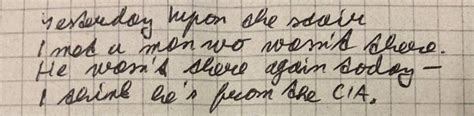 Yesterday upon the stair
I met a man wo wasn't there.
He wasn't there again today —
I think he's from the CIA.